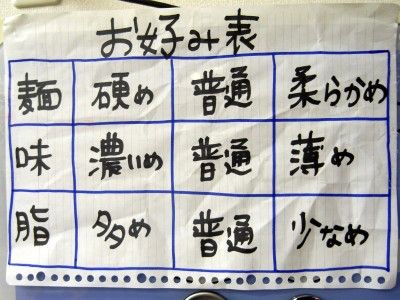 お好み表
麺 硬め 普通 柔らかめ
味 濃いめ 普通 薄め
脂 多め 普通 少なめ